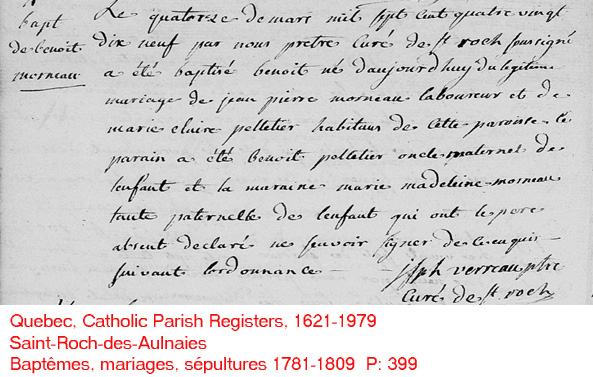 bapt
de benoit
morneau
Le quatorze de mars mil sept cent quatre vingt
dix neuf par nous pretre Curé de St roch soussigné
a été baptisé benoit né d'aujourdhuy du legitime
mariage de jean pierre morneau laboureur et de
marie claire pelletier habitans de cette paroisse le
parain a été benoit pelletier oncle maternel de
lenfant et la maraine marie madeleine morneau
tante paternelle de lenfant qui ont le pere
absent declaré ne scavoir signer de ce enquis
suivant lordonnance
jsph verreau ptre
Curé de St. roch
Quebec, Catholic Parish Registers, 1621-1979
Saint-Roch-des-Aulnaies
Baptêmes, mariages, sépultures 1781-1809 P: 399